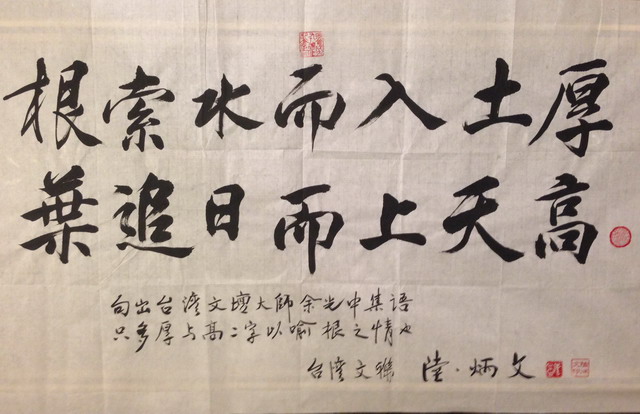 根索水而入土厚
葉追日而上天高
句出台灣文壇大師余光中集语
只多厚与高二字以喻根之情也
台灣文聯 陸·炳文